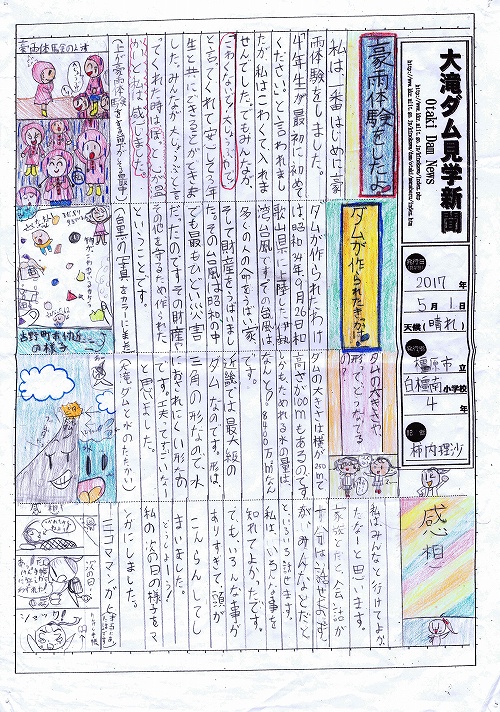 大滝ダム見学新聞
Otaki Dam News
発行日
2017年
5月1日
天候(晴れ)
発行所
橿原市立
白橿南小学校
4年
記者
柿内理沙
豪雨体験をしたよ
私は、一番はじめに豪
雨体験をしました。
「4年生が最初に初めて
ください。」と言われまし
たが、私はこわくて入れま
せんでした。でもみんなが、
こわくないで!大じょうぶやで
と言ってくれて安心して3年
生と共に
した。みんなが大じょうぶと言
ってくれた時はほっと
かいと私は感じました。
豪雨体験の様子
ダムが作られたきっかけは
ダムが作られたわけ
は、昭和34年9月26日和
歌山県に上陸した伊勢
湾台風です。その台風は、
多くの人の命をうばい、家
そして財産をうばいまし
た。その台風は昭和の中
でも最もひどい災害
だったのです。その財産や
その他を守るため作られた
ということです。
吉野町
の様子
ダムの大きさや
形って、どうなってる
の?
ダムの大きさは横が250mで
高さ100mもあるのです。
しかも、ためれる水の量は、
なんと!8400万㎥なん
です。
近畿では最大級の
ダムなのです。形は、
三角の形なので、水
におされにくい形なの
です。工夫ってすごいな
と思いました。
大滝ダムと水のたたかい
感想
私はみんなと行けてよか
ったなーと思います。
家族だと、会話が
十分は話せるけど、
みんなだと
いろいろ話せます。
私は、いろんな事を
知れてよかったです。
でも、いろんな事が
ありすぎて、頭が
こんらんしてし
まいました!
私の次の日の様子をマ
ンガにしました。
ミニコママンガ
次の日